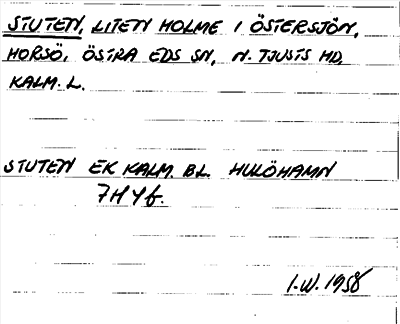 STUTEN, LITEN HOLME I ÖSTERSJÖN,
HORSÖ, ÖSTRA EDS SN, N. TJUSTS HD,
KALM. L.
STUTEN EK KALM. BL. HULÖHAMN
7H4f.
I.W. 1958